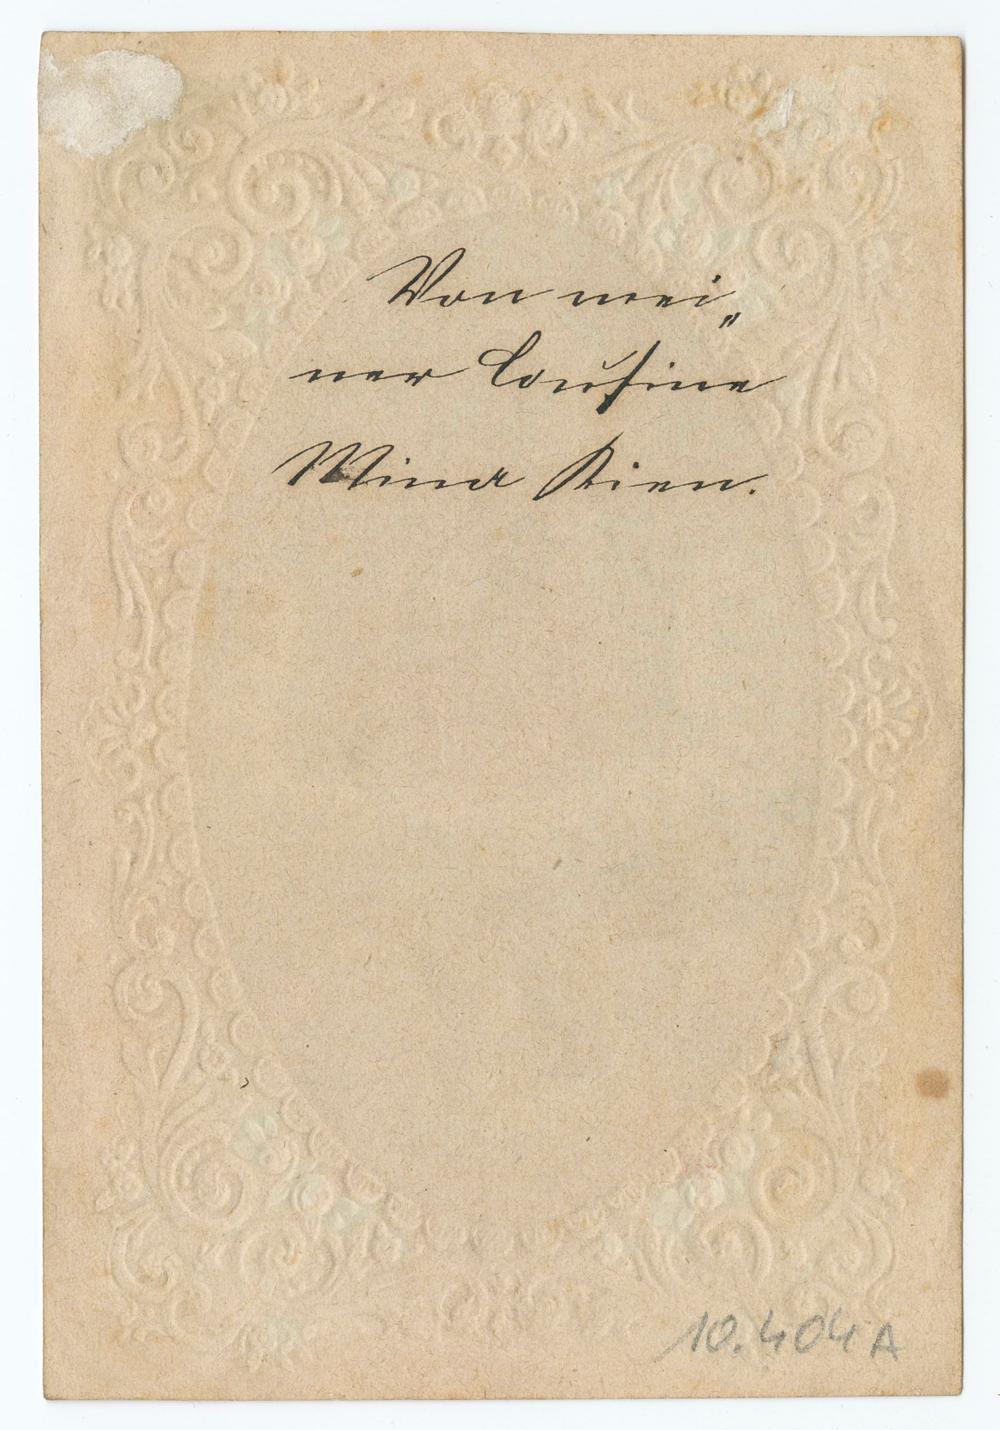 Von mei„
ner Cousine
Mina Kien.
10.404 A